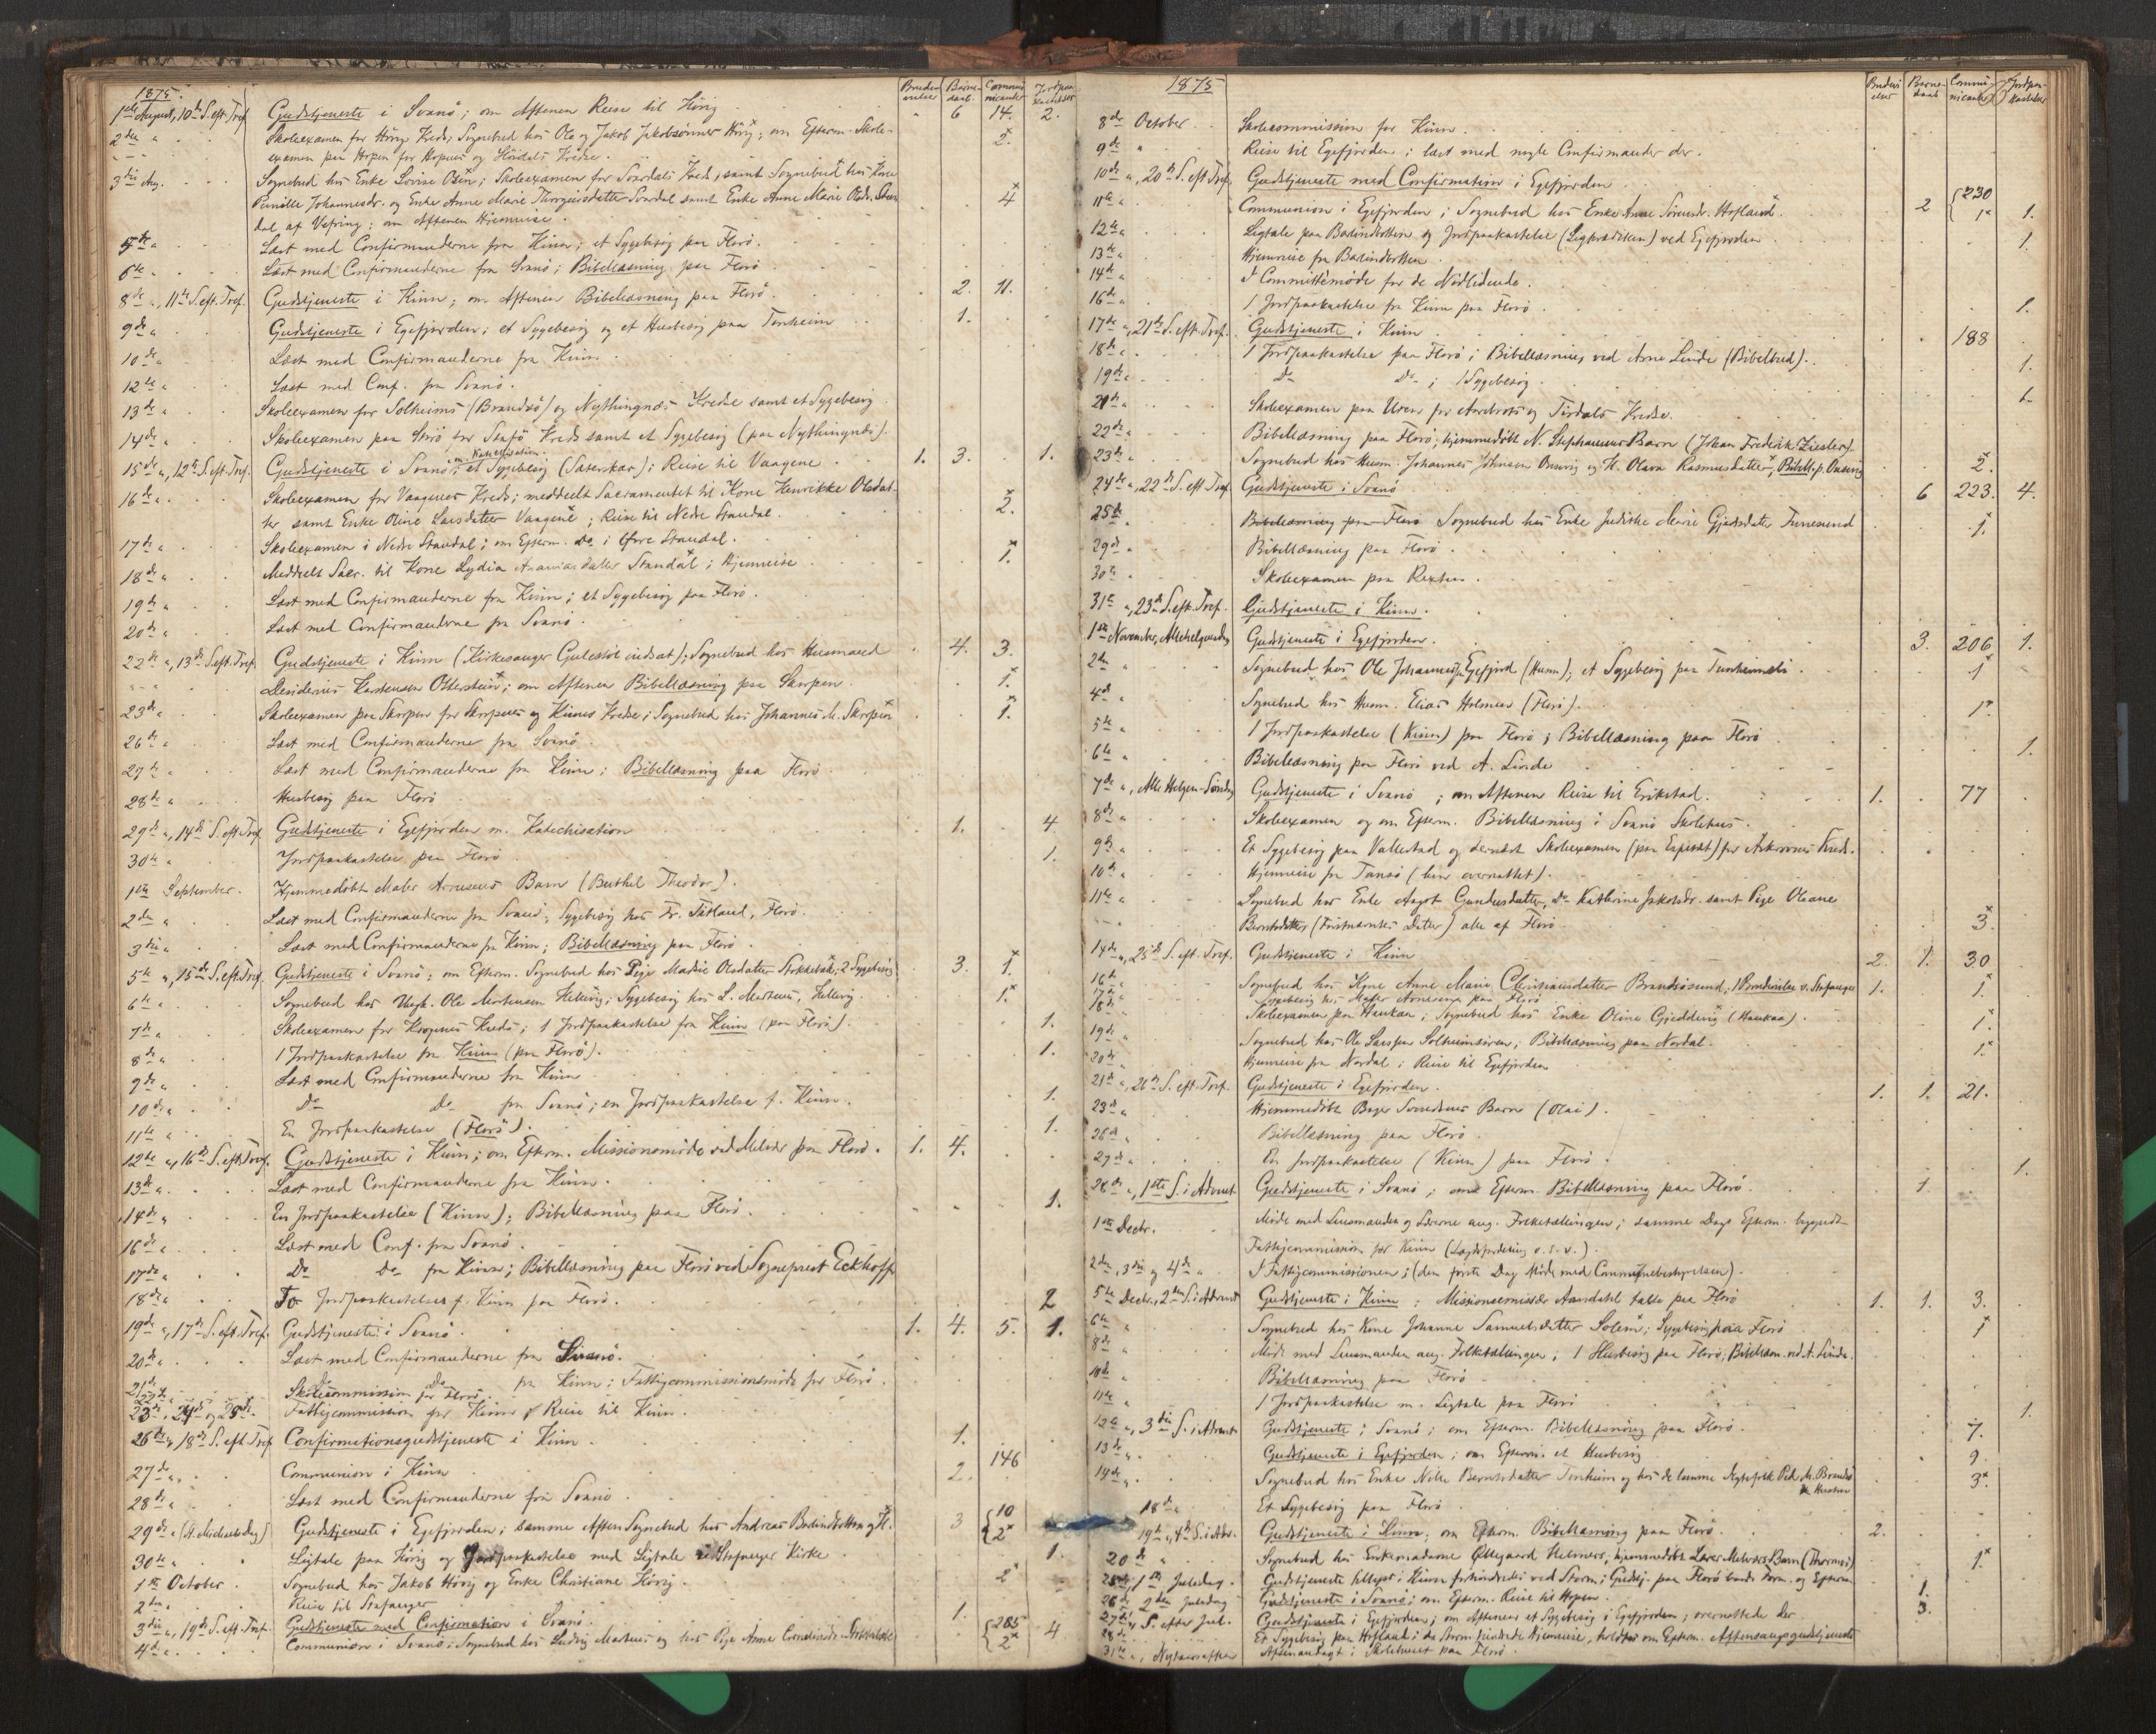 1875.
Brude-vielser Barne-daab Commu-nicanter Jordpaa-kastelser
1ste August, 10de S. eft. Tref. Gudstjeneste i Svanö; om Aftenen Reise til Hövig 6 14. 2.
2den " Skoleexamen for Hövig Kreds; Sognebud hos Ole og Jakob Jakobsönner Hövig; om Efterm. Skole- 2.
examen paa Hopen for Hopens og Kreds.
3die Aug. Sognebud hos Enke Lovise Osen; Skoleexamen for Kreds, samt Sognebud hos Kone
Pernille Johannesdr. og Enke Anne Marie samt Enke Anne Marie Olsdr. 4
dal af Vefring; om Aftenen Hjemreise.
5te " Læst med Confirmanderne fra Kinn; et Sygebesög paa Florö.
6te " Læst med Confirmanderne fra Svanö; Bibellæsning paa Florö
8de ", 11te S. eft. Tref. Gudstjeneste i Kinn; om Aftenen Bibellæsning paa Florö. 2. 11.
9de " Gudstjeneste i Egefjorden; et Sygebesög og et Husbesög paa Tonheim 1.
10de " Læst med Confirmanderne fra Kinn.
12te " Læst med Conf. fra Svanö.
13de " Skoleexamen for Solheims (Brandsö) og Nyttingnæs Kredse samt et Sygebesög
14de " Skoleexamen paa for Kreds samt et Sygebesög (paa Nyttingnæs).
15de ", 12te S. eft. Tref. Gudstjeneste i Svanö m. Katechisation; et Sygebesög; Reise til Vaagene 1. 3. 1.
16de " Skoleexamen for Vaagenes Kreds; meddeelt Sacramentet til Kone Henrikke Olsdat-
ter samt Enke Oline Larsdatter Vaagene; Reise til Nedre Standal. 2.
17de " Skoleexamen i Nedre Standal; om Efterm. Do i Övre Standal.
18de " Meddeelt Sacr. til Kone Lydia Ananiasdatter Standal; Hjemreise 1.
19de " Læst med Confirmanderne fra Kinn; et Sygebesög paa Florö.
20de " Læst med Confirmanderne fra Svanö.
22de ", 13de S. eft. Tref. Gudstjeneste i Kinn (Kirkesanger indsat); Sognebud hos Husmand 4. 3.
Desiderius Karstensen; om Aftenen Bibellæsning paa Skorpen. 1.
23de " Skoleexamen paa Skorpen for Skorpens og Kinns Kredse; Sognebud hos Johannes M. Skorpen 1.
26de " Læst med Confirmanderne fra Svanö
27de " Læst med Confirmanderne fra Kinn; Bibellæsning paa Florö
28de " Husbesög paa Florö
29de ", 14de S. eft. Tref. Gudstjeneste i Egefjorden m. Katechisation 1. 4
30te " Jordpaakastelse paa Florö 1.
1ste September. Hjemmedöbt Maler Arnesens Barn (Berthel Theodor).
2den " Læst med Confirmanderne fra Svanö; Sygebesög hos Fr. Florö.
3die " Læst med Confirmanderne fra Kinn; Bibellæsning paa Florö
5te ", 15de S. eft. Tref. Gudstjeneste i Svanö; om Efterm. Sognebud hos Pige Olsdatter; 2 Sygebesög 3. 1.
6te " Sognebud hos Ole Mortensen; Sygebesög hos L. 1.
7de " Skoleexamen for Kreds; 1 Jordpaakastelse fra Kinn (paa Florö). 1.
8de " 1 Jordpaakastelse fra Kinn (paa Florö). 1.
9de " Læst med Confirmanderne fra Kinn
10de " Do Do fra Svanö; en Jordpaakastelse f. Kinn. 1.
11te " En Jordpaakastelse (Florö). 1.
12te ", 16de S. eft. Tref. Gudstjeneste i Kinn; om Efterm. Missionsmöde ved paa Florö. 1. 4.
13de " Læst med Confirmanderne fra Kinn.
14de " En Jordpaakastelse (Kinn); Bibellæsning paa Florö. 1.
16de " Læst med Conf. fra Svanö.
17de " Do Do fra Kinn; Bibellæsning paa Florö ved Sogneprest Eckhoff
18de " To Jordpaakastelser f. Kinn paa Florö. 2
19de ", 17de S. eft. Tref. Gudstjeneste i Svanö. 1. 4. 5. 1.
20de " Læst med Confirmanderne fra Svanö.
21de " Do Do fra Kinn; Fattigcommissionsmöde for Florö.
22de Skolecommission for Florö.
23de, 24de og 25de. Fattigcommission for Kinn; Reise til Kinn.
26de ", 18de S. eft. Tref. Confirmationsgudstjeneste i Kinn. 1.
27de " Communion i Kinn 2. 146
28de " Læst med Confirmanderne fra Svanö
29de " (St. Michaelsdag) Gudstjeneste i Egefjorden; samme Aften Sognebud hos Andreas 3 {10 2
30te " Ligtale paa Hövig og Jordpaakastelse med Ligtale ved Stafanger Kirke 1.
1ste October. Sognebud hos Jakob Hövig og Enke Christiane Hövig. 2
2den " Reise til Stafanger
3die ", 19de S. eft. Tref. Gudstjeneste med Confirmation i Svanö. 1.
4de " Communion i Svanö; Sognebud hos Ludvig og hos Pige Anne {285 2 4
1875
Brudevi-elser Barne-daab Commu-nicanter Jordpaa-kastelser
8de October Skolecommission for Kinn.
9de " Reise til Egefjorden; læst med nogle Confirmander der.
10de ", 20de S. eft. Tref. Gudstjeneste med Confirmation i Egefjorden
11te " Communion i Egefjorden; Sognebud hos Enke Anne Sörensdr. Hofland 2 {230 1 1.
12te " Ligtale paa og Jordpaakastelse ved Egefjorden 1.
13de " Hjemreise fra
14de " I Committémöde for de Nödlidende.
16de " 1 Jordpaakastelse fra Kinn paa Florö 1.
17de ", 21de S. eft. Tref. Gudstjeneste i Kinn 188
18de " 1 Jordpaakastelse paa Florö; Bibellæsning ved Arne Linde (Bibelbud). 1.
19de " Do Do; 1 Sygebesög. 1.
21de " Skoleexamen paa for og Kredse.
22de " Bibellæsning paa Florö; hjemmedöbt N. Stephansens Barn (Johan Frederik)
23de " Sognebud hos Husm. Johannes Johnsen og K. Olava Rasmusdatter; 2.
24de ", 22de S. eft. Tref. Gudstjeneste i Svanö 6 223. 4.
25de " Bibellæsning paa Florö Sognebud hos Enke Marie 1.
29de " Bibellæsning paa Florö.
30te " Skoleexamen paa Rexten.
31te ", 23de S. eft. Tref. Gudstjeneste i Kinn.
1ste November, Allehelgensdag Gudstjeneste i Egefjorden. 3. 206 1.
2den " Sognebud hos Ole Egefjord (Husm); et Sygebesög paa 1
4de " Sognebud hos Husm. Elias Holmen (Florö). 1
5te " 1 Jordpaakastelse (Kinn) paa Florö; Bibellæsning paa Florö 1.
6te " Bibellæsning paa Florö ved A. Linde
7de ", Alle Helgen-Söndag Gudstjeneste i Svanö; om Aftenen Reise til Erikstad. 1. 77
8de " Skoleexamen og om Efterm. Bibellæsning i Svanö Skolehus.
9de " Et Sygebesög paa Vallestad og dernæst Skoleexamen for Askrovens Kreds.
10de " Hjemreise fra Tansö (her overnattet).
11te " Sognebud hos Enke Aagot Gundersdatter, Do Kathrine Jakobsdr. samt Pige Oleane
Berntsdatter alle af Florö. 3
14de ", 25de S. eft. Tref. Gudstjeneste i Kinn 2. 1. 30
16de Sognebud hos Anne Marie Christiansdatter Brandsösund; 1 Brudevielse v. Stafanger 1. 1.
17de Sygebesög hos Maler Arnesens paa Florö
18de Skoleexamen paa Haukaa; Sognebud hos Enke Oline (Haukaa). 1.
19de " Sognebud hos Ole; Bibellæsning paa Nordal. 1.
20de " Hjemreise fra Nordal; Reise til Egefjorden
21de ", 26de S. eft. Tref. Gudstjeneste i Egefjorden. 1. 1. 21.
23de " Hjemmedöbt Bager Barn (Olai).
26de " Bibellæsning paa Florö.
27de " En Jordpaakastelse (Kinn) paa Florö. 1.
28de ", 1ste S. i Advent Gudstjeneste i Svanö; om Efterm. Bibellæsning paa Florö. 1.
1ste Decbr. Möde med Lensmanden og Lærerne ang. Folketællingen; samme Dags Efterm. begyndte
Fattigcommission for Kinn (Lægdsfordeling o.s.v.).
2den, 3die og 4de " I Fattigcommissionen; (den förste Dag Möde med Communebestyrelsen).
5te Decbr., 2den S. i Advent Gudstjeneste i Kinn; Missionsemissær Aandahl talte paa Florö 1. 1. 3.
6te " Sognebud hos Kone Johanne Samuelsdatter Solem; Sygebesög paa Florö 1
8de " Möde med Lensmanden ang. Folketællingen; 1 Husbesög paa Florö; Bibellæsn. ved A. Linde.
10de " Bibellæsning paa Florö
11te " 1 Jordpaakastelse m. Ligtale paa Florö 1.
12te ", 3die S. i Advent Gudstjeneste i Svanö; om Efterm. Bibellæsning paa Florö. 7.
13de " Gudstjeneste i Egefjorden; om Efterm. et Husbesög 9
14de " Sognebud hos Enke Berntsdatter Tonheim og hos Ped. M. Brandsö 3
18de " Et Sygebesög paa Florö
19de ", 4de S. i Adv. Gudstjeneste i Kinn; om Efterm. Bibellæsning paa Florö. 2.
20de " Sognebud hos Enkemadame Öllegaard Helmers; hjemmedöbt Lærer Barn 1
25de, 1ste Juledag. Gudstjeneste i Kinn forhindredes ved Storm; Gudstj. paa Florö baade Form. og Efterm.
26de, 2den Juledag Gudstjeneste i Svanö; om Efterm. Reise til Hopen. 1.
27de, S. efter Jul. Gudstjeneste i Egefjorden; om Aftenen et Sygebesög i Egefjorden; overnattede der 3.
28de Et Sygebesög paa Hofland; da Storm hindrede Hjemreise, holdtes om Efterm. Aftensangsgudstjeneste
31te ", Nytaarsaften Aftenandagt i Skolehuset paa Florö.